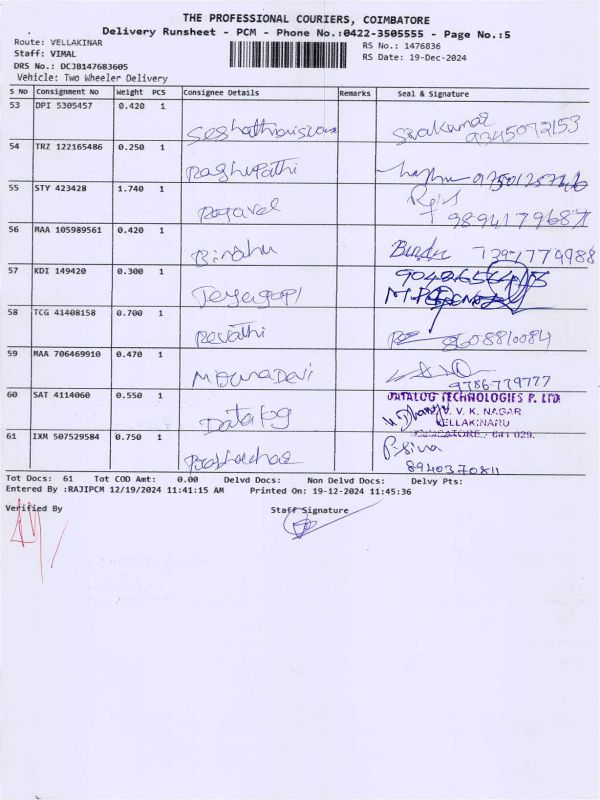 THE PROFESSIONAL COURIERS, COIMBATORE
Delivery Runsheet - PCM - Phone No.:0422-3505555 - Page No.:5
Route: VELLAKINAR
Staff: VIMAL
RS No.: 1476836
DRS No.: DCJB147683605
RS Date: 19-Dec-2024
Vehicle: Two Wheeler Delivery
S No Consignment No Weight PCS Consignee Details Remarks Seal & Signature
53 DPI 5305457 0.420 1 Sivakumar
9345072153
54 TRZ 122165486 0.250 1 Raghupathi
55 STY 423428 1.740 1
9894179687
56 MAA 105989561 0.420 1 Bindhu Bindu 7397779988
57 KDI 149420 0.300 1 Jeyagopi
58 TCG 41408158 0.700 1 Revathi 8608810084
59 MAA 706469910 0.470 1 Mouna Devi
9786779777
60 SAT 4114060 0.550 1 Datalog DATALOG TECHNOLOGIES P. LTD.
V. K. NAGAR
VELLAKINARU
COIMBATORE - 641 029.
61 IXM 507529584 0.750 1 Prabhachar P. Siva
8940370811
Tot Docs: 61 Tot COD Amt: 0.00 Delvd Docs: Non Delvd Docs: Delvy Pts:
Entered By :RAJIPCM 12/19/2024 11:41:15 AM Printed On: 19-12-2024 11:45:36
Verified By Staff Signature